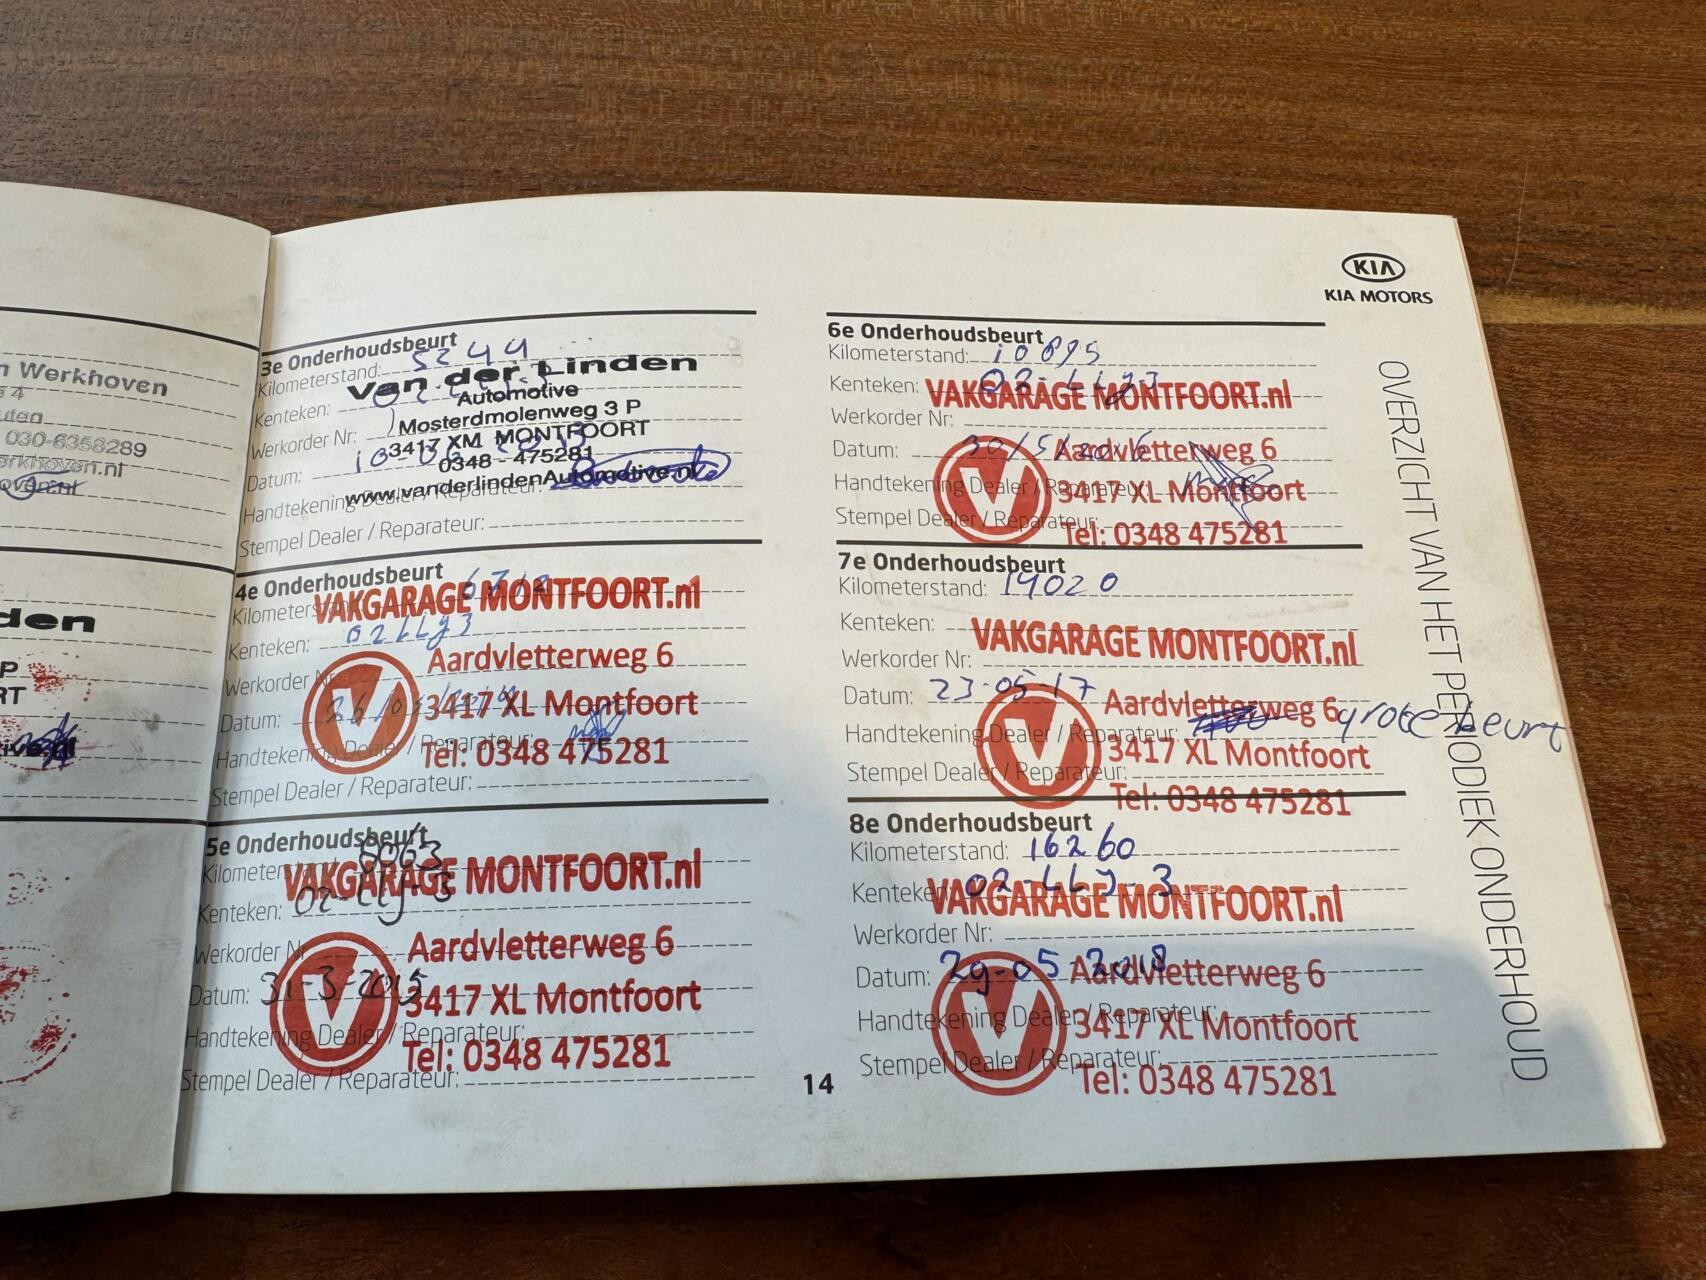 n Werkhoven
e 4
uten
030-6358289
erkhoven.nl
oven.nl
den
P
RT
tive.nl
3e Onderhoudsbeurt
Kilometerstand: 5244
Van der Linden
Automotive
Kenteken:
Mosterdmolenweg 3 P
Werkorder Nr:
3417 XM MONTFOORT
0348 - 475281
Datum:
www.vanderlindenAutomotive.nl
Handtekening Dealer / Reparateur:
Stempel Dealer / Reparateur:
4e Onderhoudsbeurt
Kilometerstand:
VAKGARAGE MONTFOORT.nl
Kenteken: 02LLJ3
Werkorder Nr:
Aardvletterweg 6
Datum:
3417 XL Montfoort
Handtekening Dealer / Reparateur:
Tel: 0348 475281
Stempel Dealer / Reparateur:
5e Onderhoudsbeurt
Kilometerstand: 8063
VAKGARAGE MONTFOORT.nl
Kenteken: 02-LLJ-3
Werkorder Nr:
Aardvletterweg 6
Datum: 31-3-2015
3417 XL Montfoort
Handtekening Dealer / Reparateur:
Tel: 0348 475281
Stempel Dealer / Reparateur:
KIA
KIA MOTORS
6e Onderhoudsbeurt
Kilometerstand: 10895
Kenteken: 02-LLJ3
VAKGARAGE MONTFOORT.nl
Werkorder Nr:
Datum: 30/5/2016
Aardvletterweg 6
Handtekening Dealer / Reparateur:
3417 XL Montfoort
Stempel Dealer / Reparateur:
Tel: 0348 475281
7e Onderhoudsbeurt
Kilometerstand: 14020
Kenteken:
VAKGARAGE MONTFOORT.nl
Werkorder Nr:
Datum: 23-05-17
Aardvletterweg 6
grote beurt
Handtekening Dealer / Reparateur:
3417 XL Montfoort
Stempel Dealer / Reparateur:
Tel: 0348 475281
8e Onderhoudsbeurt
Kilometerstand: 16260
Kenteken: 02-LLJ-3
VAKGARAGE MONTFOORT.nl
Werkorder Nr:
Datum: 29-05-2018
Aardvletterweg 6
Handtekening Dealer / Reparateur:
3417 XL Montfoort
Stempel Dealer / Reparateur:
Tel: 0348 475281
14
OVERZICHT VAN HET PERIODIEK ONDERHOUD